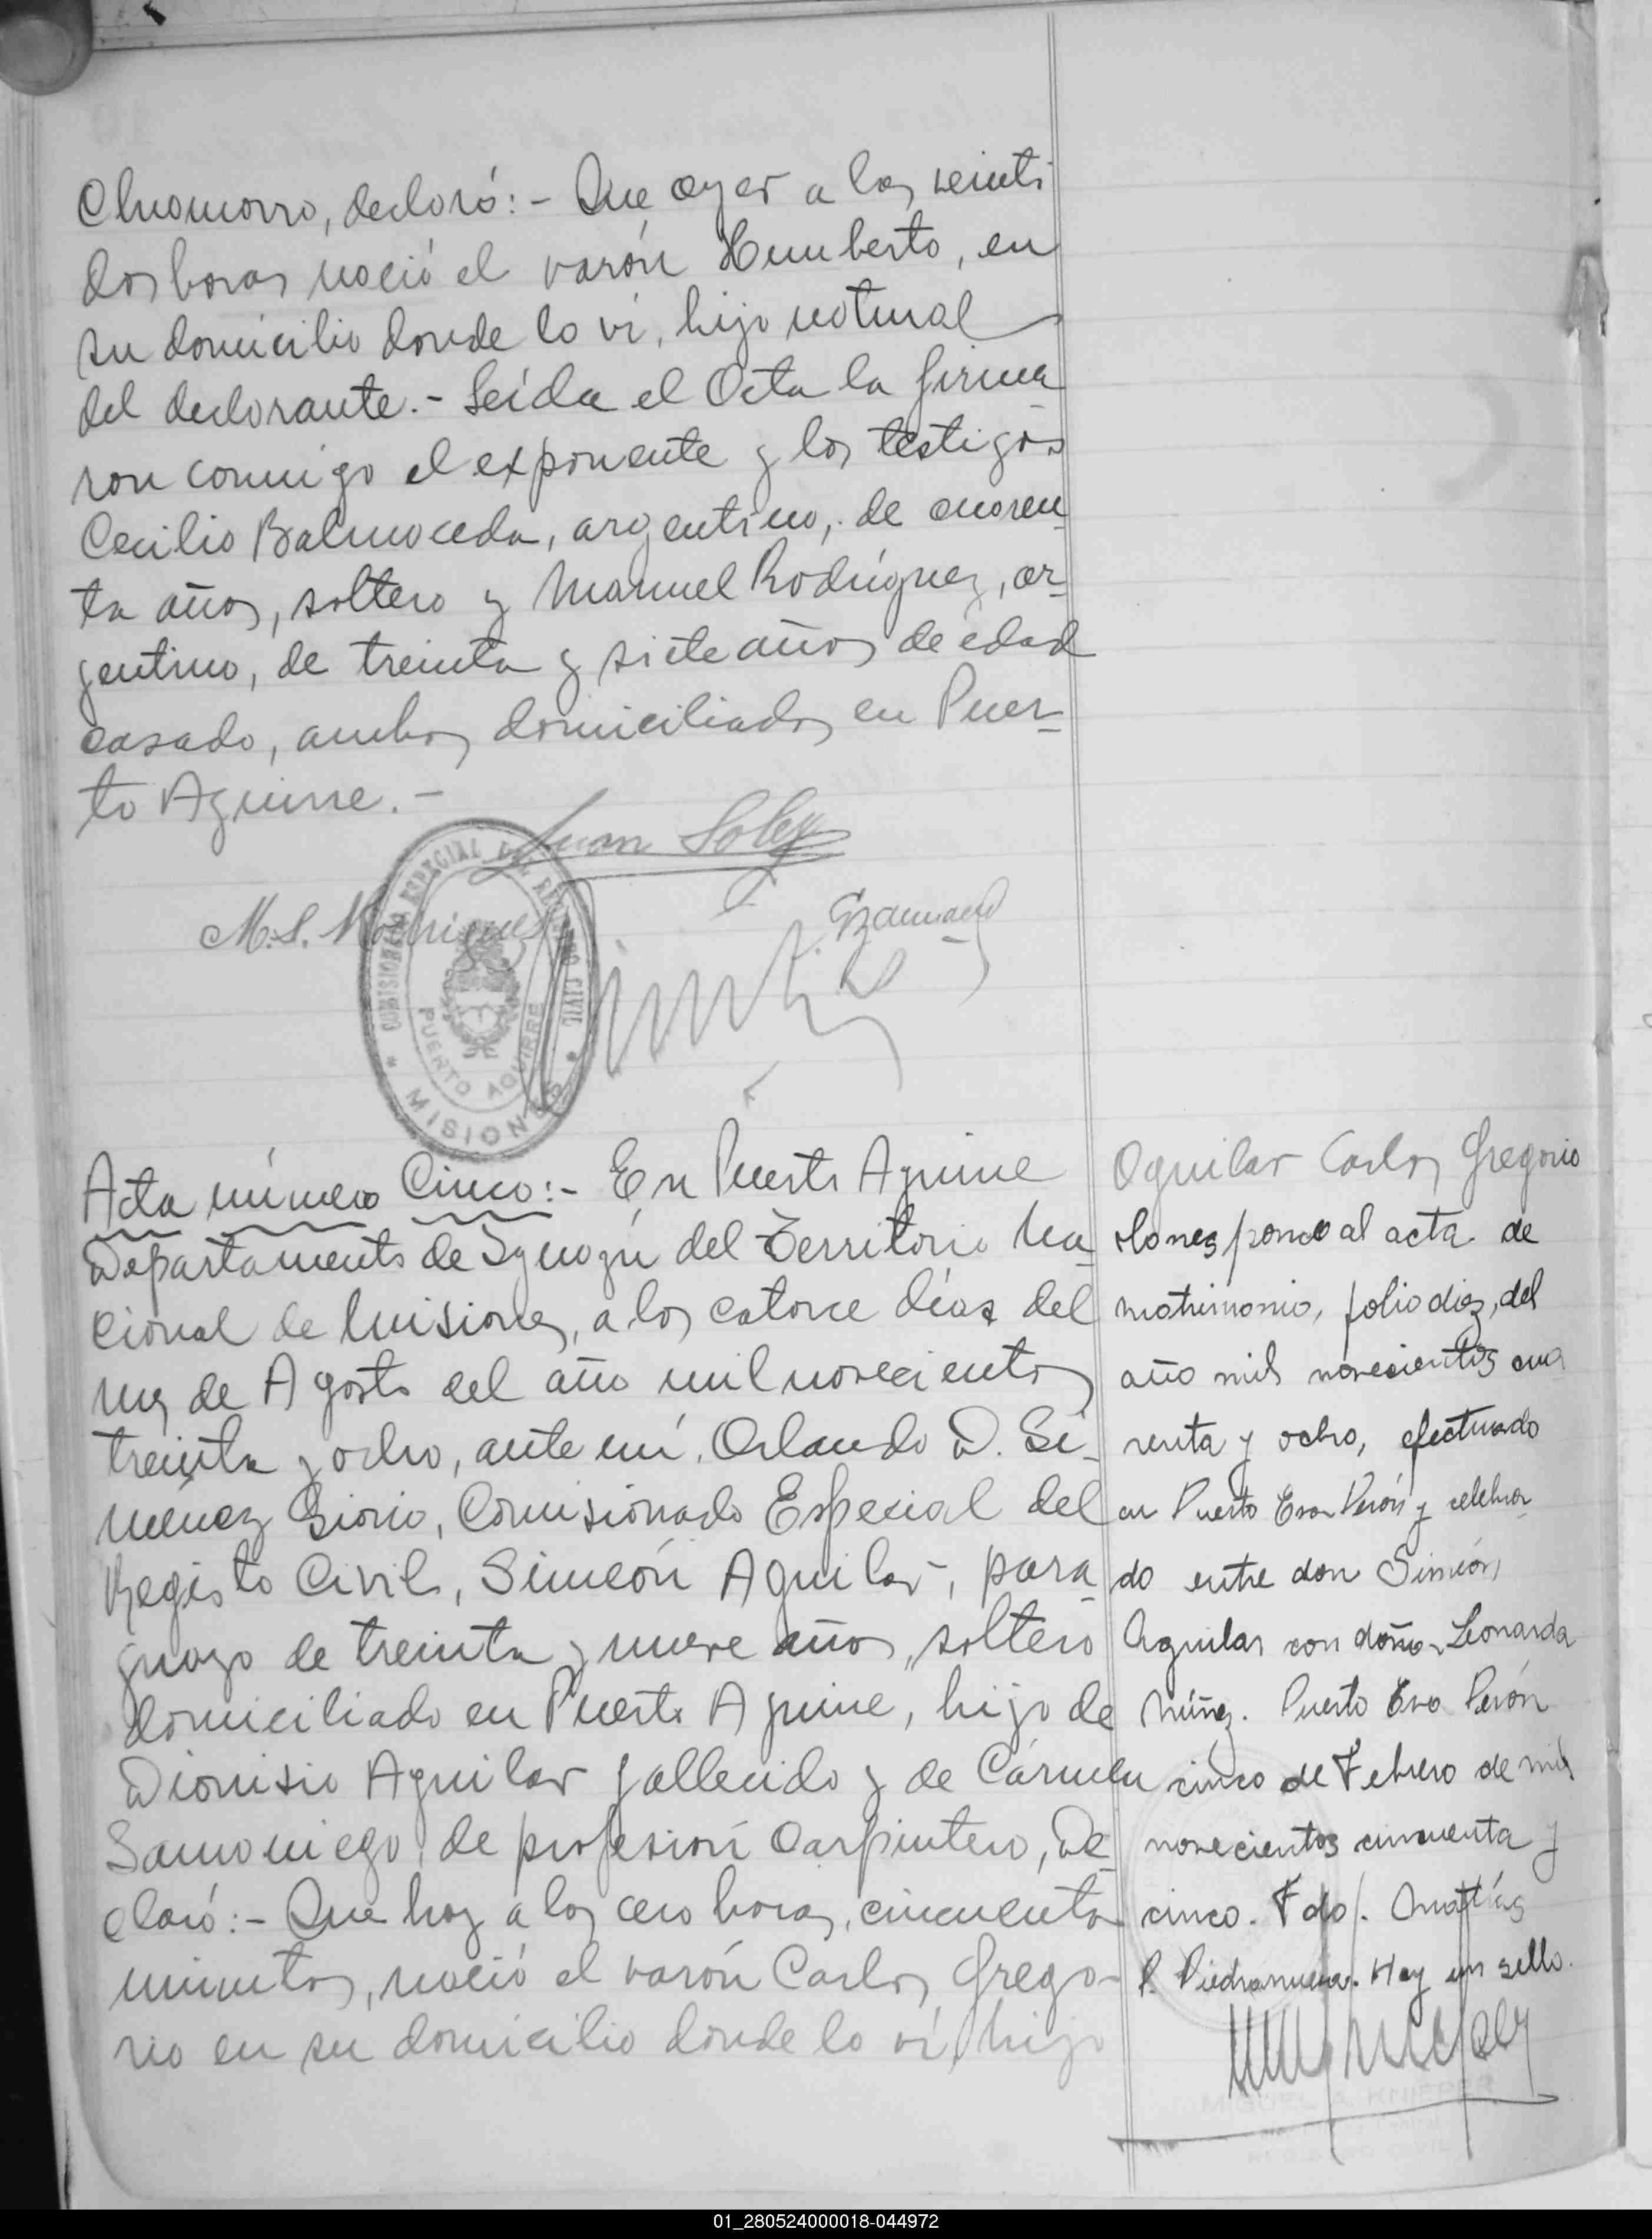 Chamorro, declaró:- Que ayer a las veinti
dos horas nació el varón Humberto, en
su domicilio donde lo vi, hijo natural
del declarante.- Leída el Acta la firma
ron conmigo el exponente y los testigos
Cecilio Balmaceda, argentino, de cuaren
ta años, soltero y Manuel Rodríguez, ar-
gentino, de treinta y siete años de edad
casado, ambos domiciliados en Puer-
to Aguirre.-
Juan
M.S. Rodriguez
COMISIONADO ESPECIAL DEL REGISTRO CIVIL
PUERTO AGUIRRE
* MISIONES *
Acta número Cinco:- En Puerto Aguirre
Departamento de Iguazú del Territorio Na
cional de Misiones, a los catorce días del
mes de Agosto del año mil novecientos
treinta y ocho, ante mí, Orlando D. Si-
ménez, Comisionado Especial del
Registo Civil, Simeón Aguilar, para
guayo de treinta y nueve años, soltero
domiciliado en Puerto Aguirre, hijo de
Dionisio Aguilar fallecido y de Cármen
Samoniego de profesión Carpintero, De
claró:- Que hoy a las cero horas, cincuenta
minutos, nació el varón Carlos Grego-
rio en su domicilio donde lo ví, hijo
Aguilar Carlos Gregorio
al acta de
matrimonio, folio diez, del
año mil novecientos cua
renta y ocho, efectuado
en Puerto Eva Perón y celebra
do entre don Simeón
Aguilar con doña Leonarda
Núñez. Puerto Eva Perón
cinco de Febrero de mil
novecientos cincuenta y
cinco. Fdo/. Matías
P. Piedranueva. Hay un sello.
MIGUEL A. KNIEPER